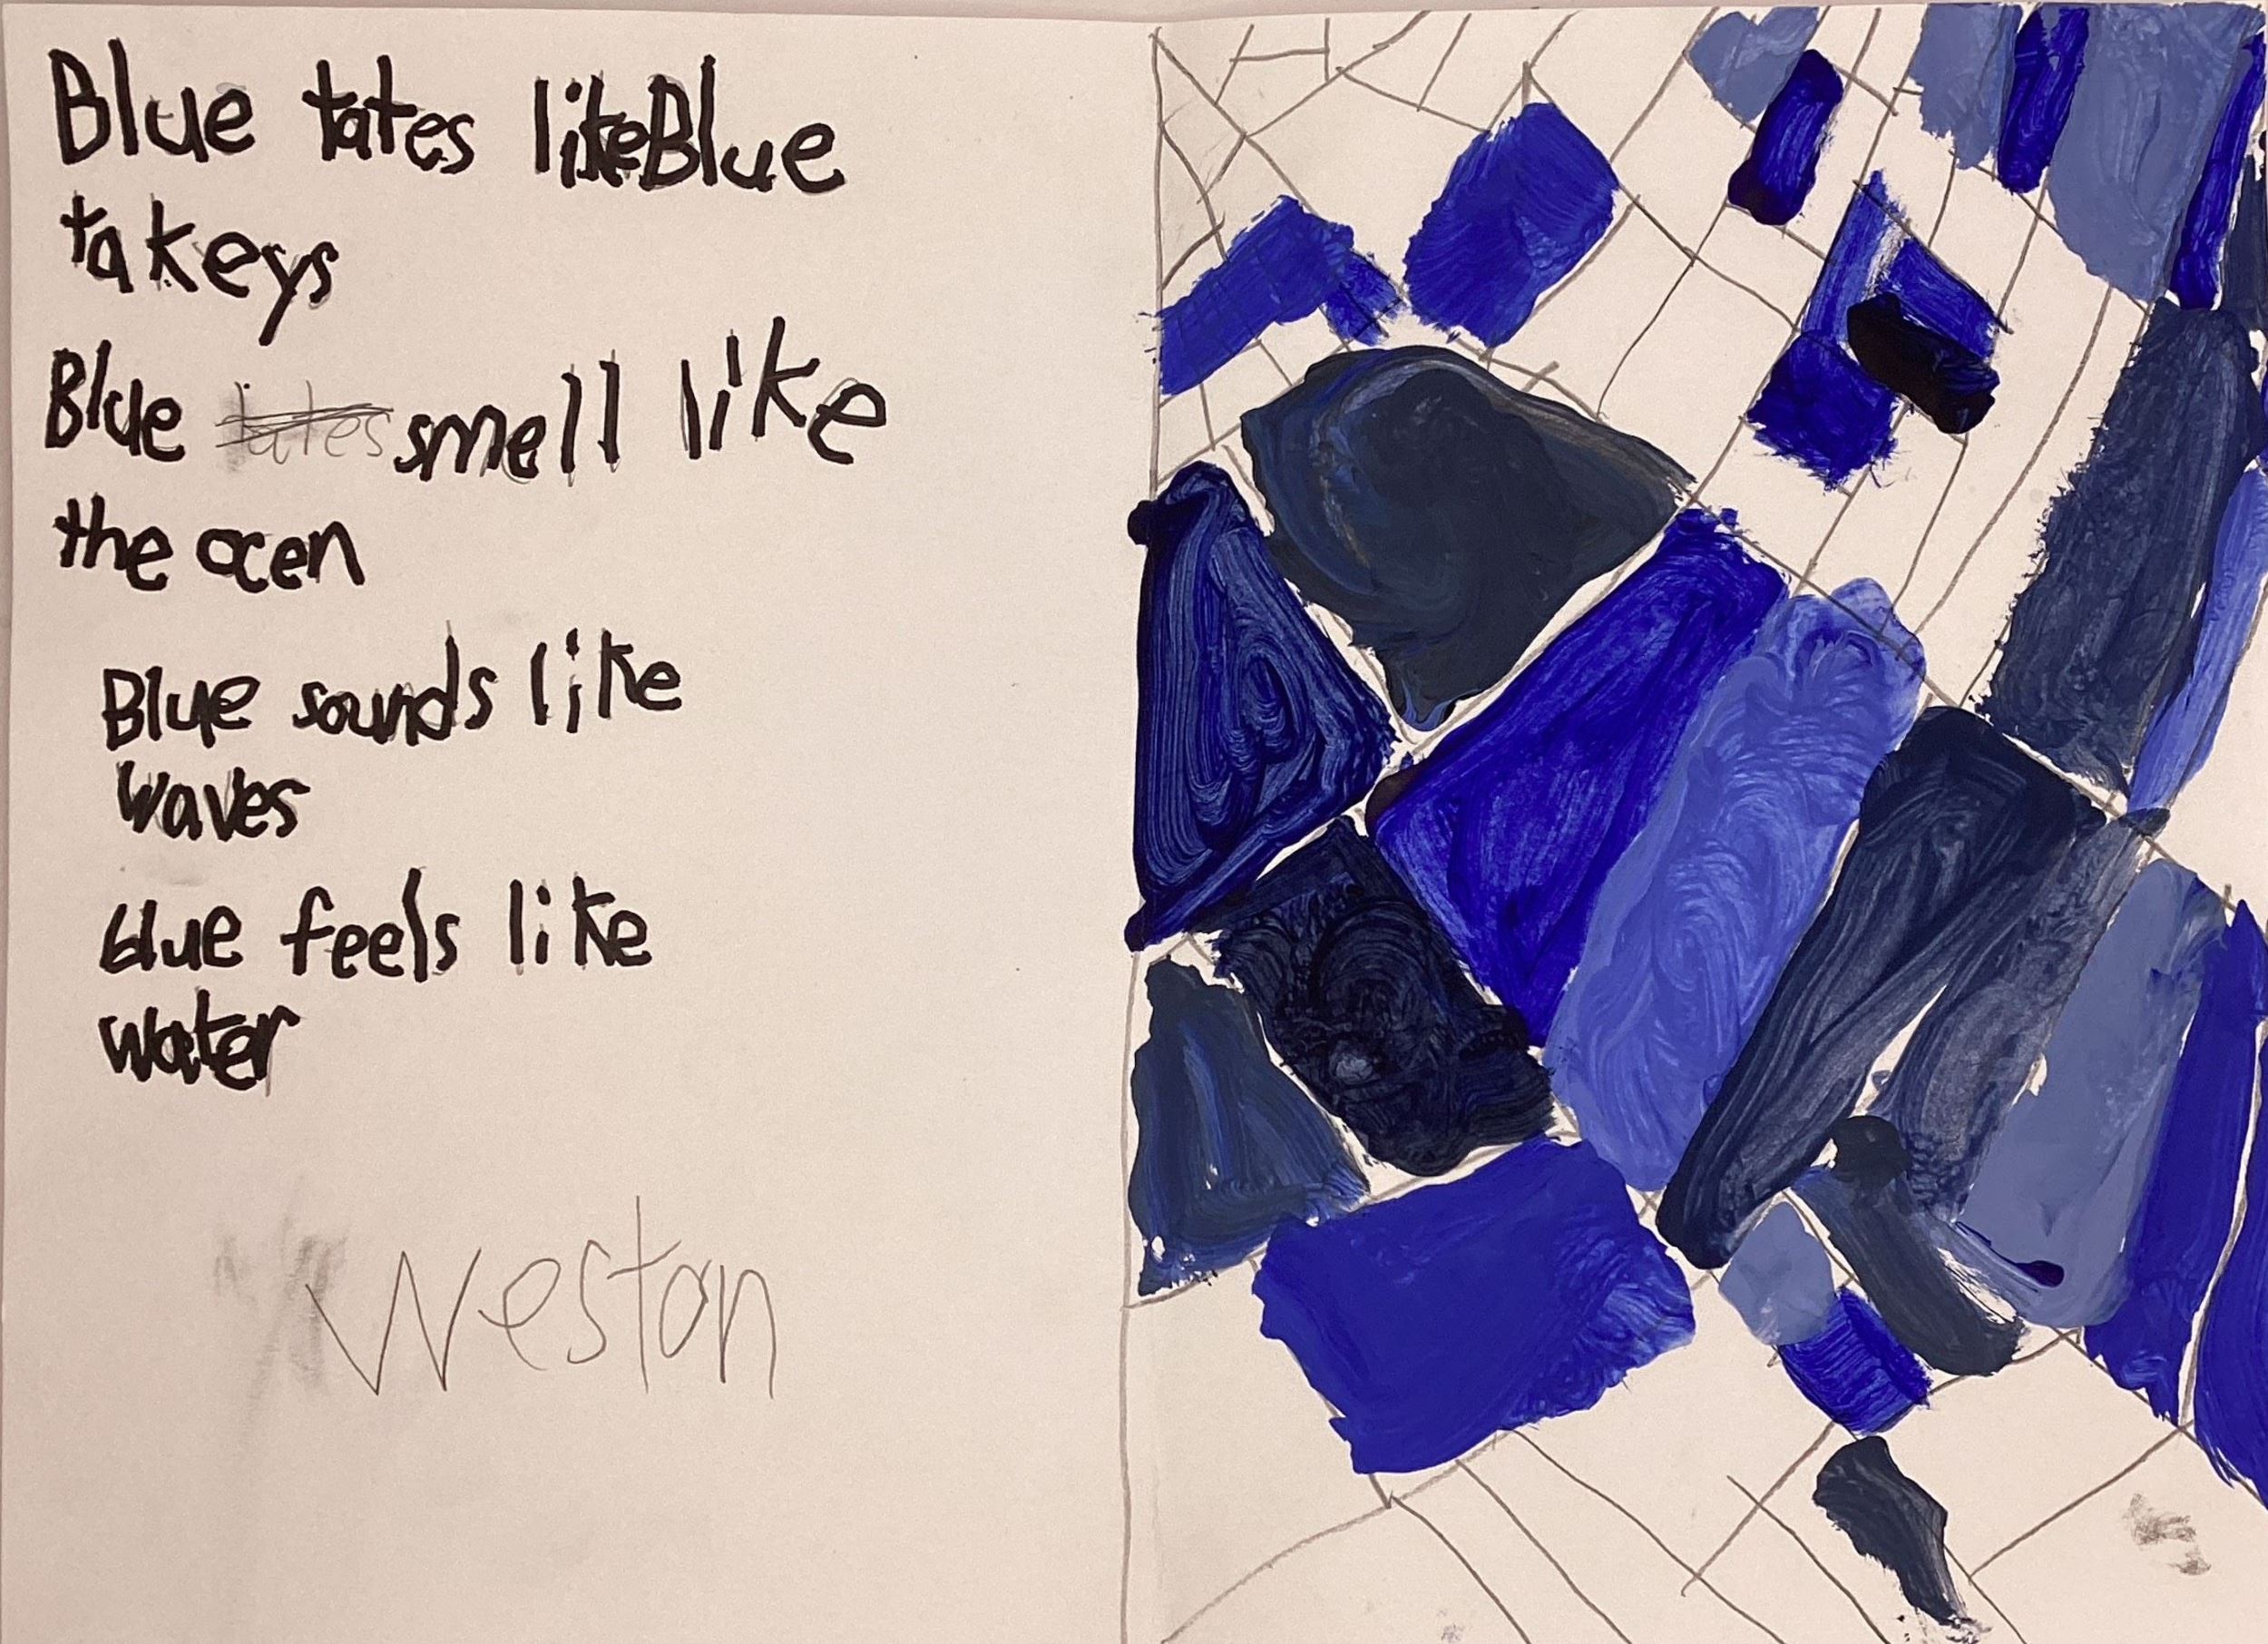 Blue tates likeBlue
takeys
Blue tates smell like
the ocen
Blue sounds like
waves
blue feels like
water
Weston